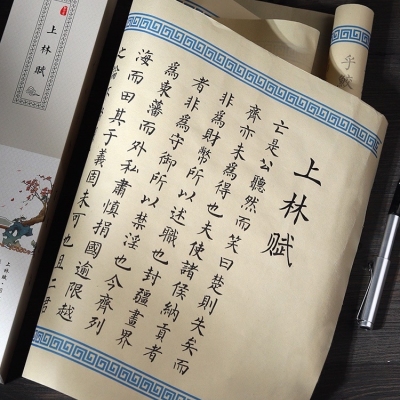 上林赋
亡是公聽然而笑曰楚則失矣而
齊亦未爲得也夫使諸侯納貢者
非爲財幣所以述職也封疆畫界
者非爲守御所以禁淫也今齊列
爲東藩而外私肅慎捐國逾限越
海而田其于義固未可也且二君
之論
上林赋
上林赋